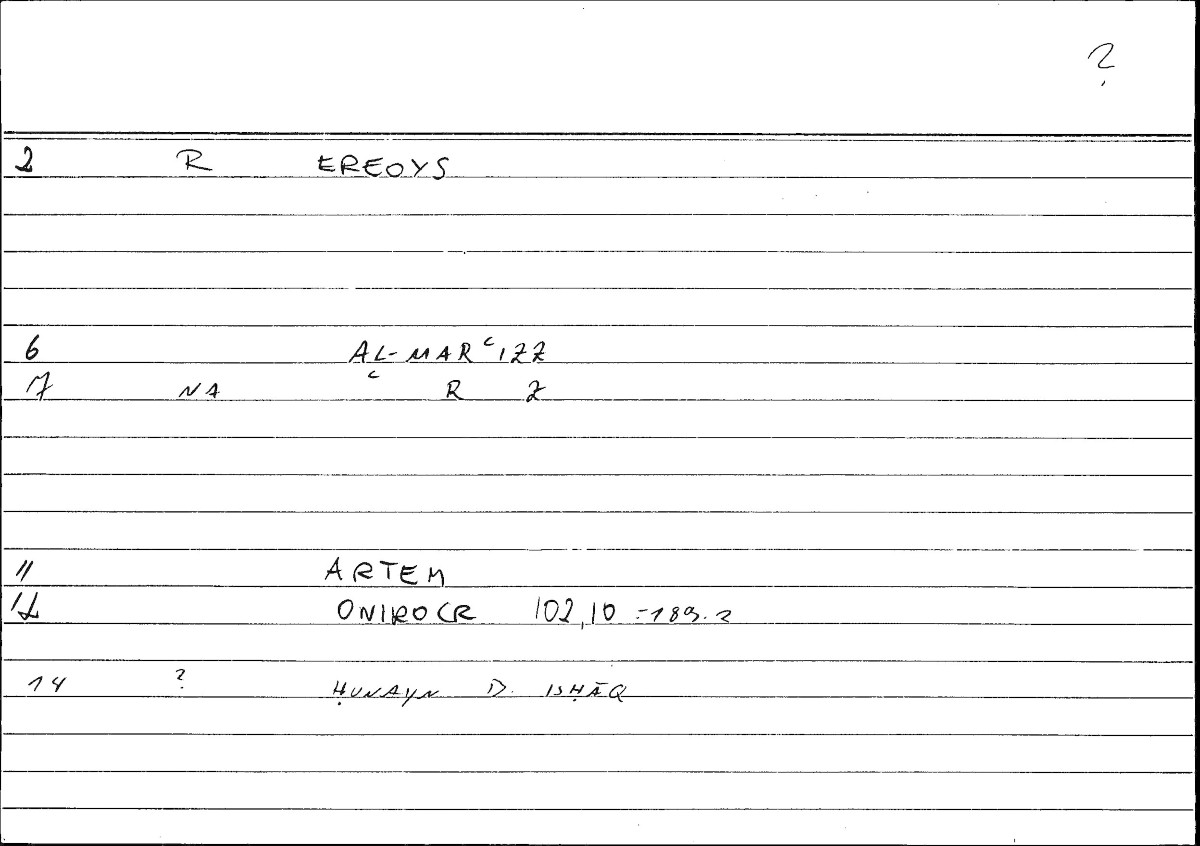 ?
2 R EREOYS
6 AL-MAR ʿIZZ
7 NA ʿ R Z
11 ARTEM
12 ONIROCR 102,10 = 189.2
14 ? ḤUNAYN D. ISḤĀQ